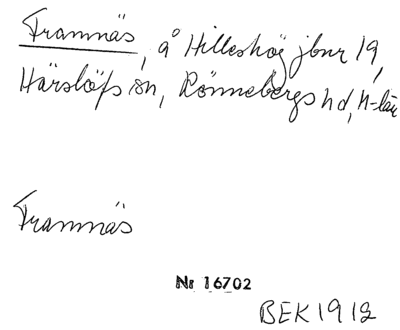 Framnäs, å Hilleshög jbnr 19,
Härslöfs sn, Rönnebergs hd, M-län
Framnäs
Nr 16702
BEK 1912